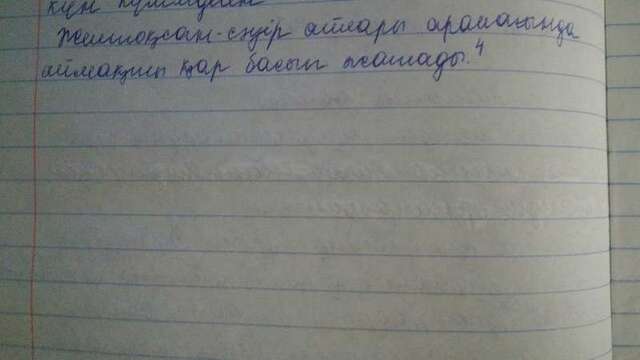 күн
Желтоқсан-сәуір айлары аралығында
аймақты қар басып жатады.⁴